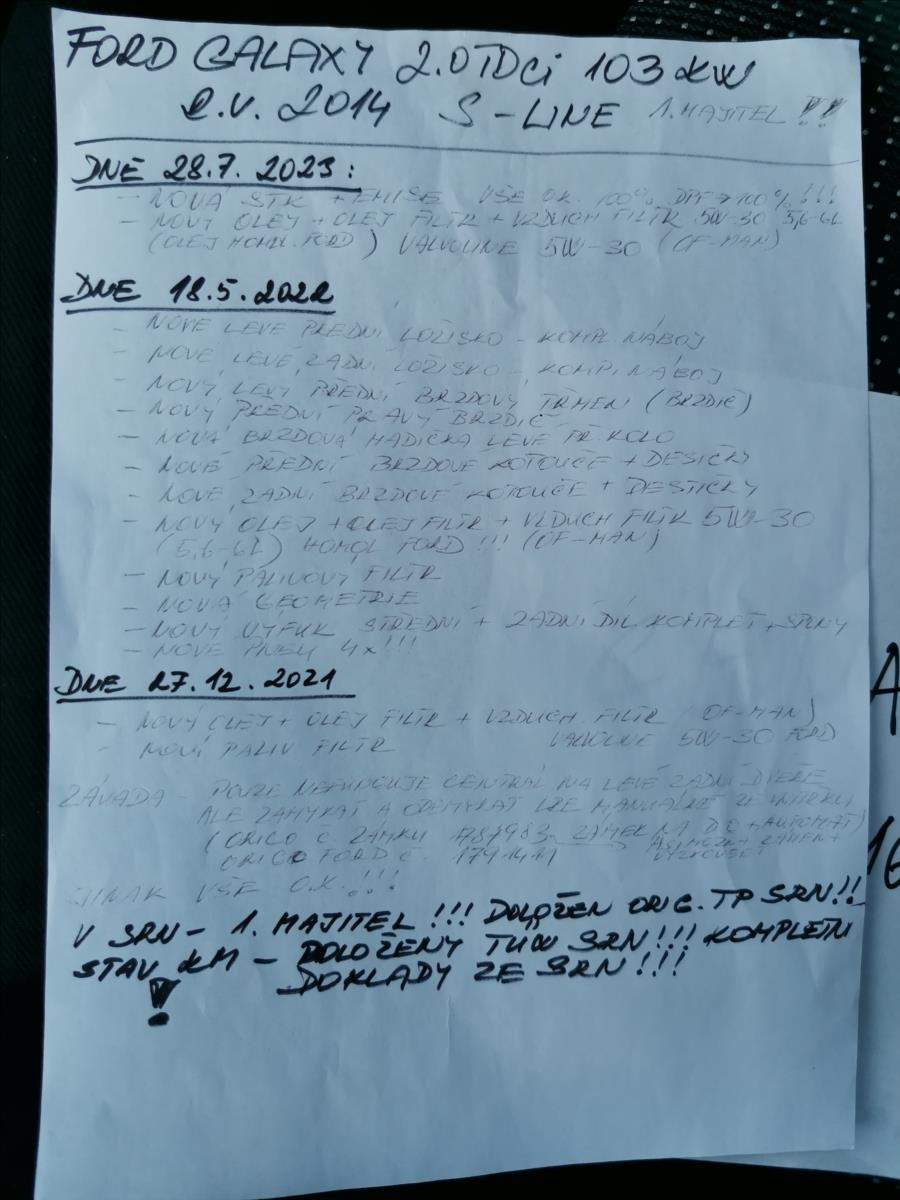 FORD GALAXY 2.0TDCi 103 KW
R.V. 2014 S-LINE 1.MAJITEL !!
DNE 28.7. 2023:
- NOVÁ STK + EMISE VŠE OK. 100% DPF → 100%!!!
- NOVÝ OLEJ + OLEJ FILTR + VZDUCH FILTR 5W-30 5,6-6L
(OLEJ HOMOL. FORD) VALVOLINE 5W-30 (OF-MAN)
DNE 18.5.2022
- NOVÉ LEVÉ PŘEDNÍ LOŽISKO - KOMPL. NÁBOJ
- NOVÉ LEVÉ ZADNÍ LOŽISKO - KOMPL. NÁBOJ
- NOVÝ LEVÝ PŘEDNÍ BRZDOVÝ TŘMEN (BRZDIČ)
- NOVÝ PŘEDNÍ PRAVÝ BRZDIČ
- NOVÁ BRZDOVÁ HADIČKA LEVÉ PŘ. KOLO
- NOVÉ PŘEDNÍ BRZDOVÉ KOTOUČE + DESIČKY
- NOVÉ ZADNÍ BRZDOVÉ KOTOUČE + DESTIČKY
- NOVÝ OLEJ + OLEJ FILTR + VZDUCH FILTR 5W-30
(5,6-6L) HOMOL FORD !!! (OF-MAN)
- NOVÝ PALIVOVÝ FILTR
- NOVÁ GEOMETRIE
- NOVÝ VÝFUK STŘEDNÍ + ZADNÍ DÍL KOMPLET + SPONY
- NOVÉ PNEU 4x!!!
DNE 27.12.2021
- NOVÝ OLEJ + OLEJ FILTR + VZDUCH FILTR (OF-MAN)
- NOVÝ PALIV FILTR VALVOLINE 5W-30 FORD
ZÁVADA - POUZE NEFUNGUJE CENTRAL NA LEVÉ ZADNÍ DVEŘE
ALE ZAMYKAT A ODEMYKAT LZE MANUÁLNĚ ZE VNITŘKU
(ORIGO Č. ZÁMKU
ORIGO FORD Č. 1791411
JINAK VŠE O.K. !!!
V SRN - 1. MAJITEL !!! DOLOŽEN ORIG. TP SRN!!
STAV KM - DOLOŽENY TUV SRN!!! KOMPLETNI
! DOKLADY ZE SRN!!!
A
16